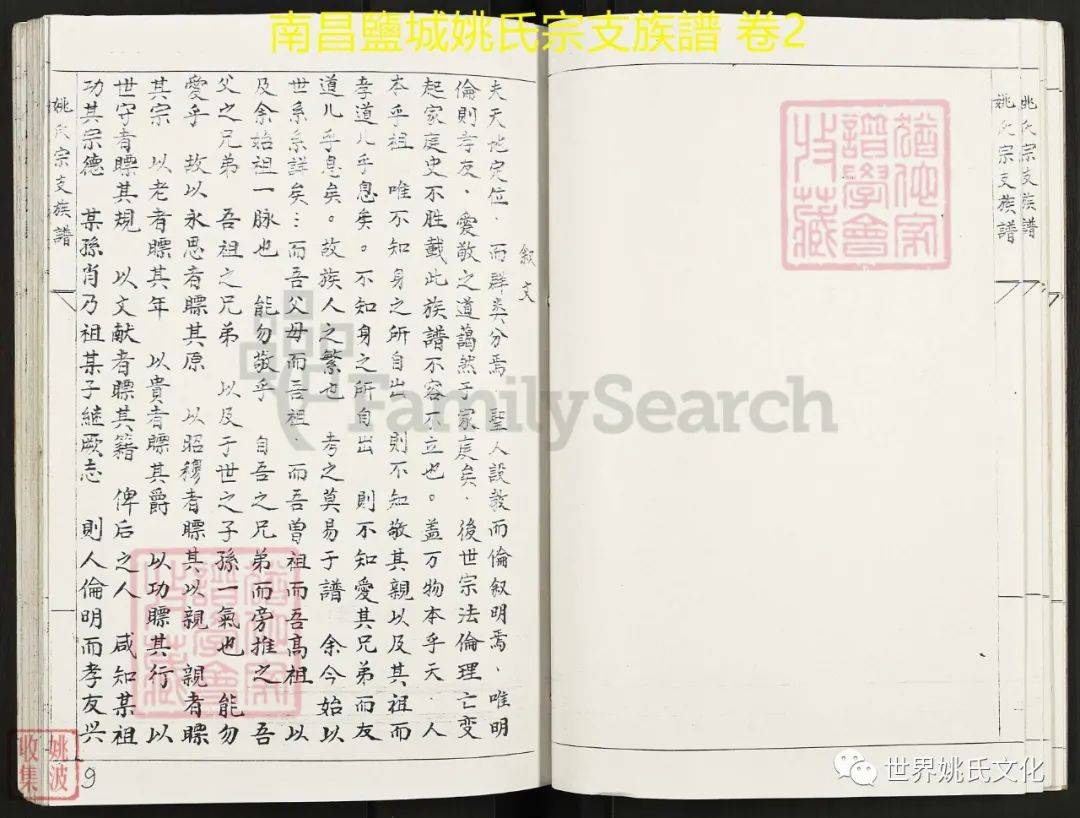 南昌鹽城姚氏宗支族譜 卷2
姚氏宗支族譜
姚氏宗支族譜
猶他家譜學會收藏
敘文
夫天地定位．而群类分焉．聖人設教而倫叙明焉．唯明
倫則孝友．愛敬之道藹然于家庭矣．後世宗法倫理亡变
起家庭史不胜載此族譜不容不立也。盖万物本乎天．人
本乎祖 唯不知身之所自出 則不知敬其親以及其祖而
孝道几乎息矣。不知身之所自出 則不知愛其兄弟而友
道几乎息矣。故族人之繁也 考之莫易于譜 余今始以
世系系詳矣…而吾父母而吾祖．而吾曾祖而吾高祖 以
及余始祖一脉也 能勿敬乎 自吾之兄弟而旁推之 吾
父之兄弟 吾祖之兄弟 以及于世之子孫一氣也 能勿
愛乎 故以永思者瞟其原 以昭穆者瞟其以親 親者瞟
其宗 以老者瞟其年 以貴者瞟其爵 以功瞟其行 以
世守者瞟其規 以文献者瞟其籍 俾后之人 咸知某祖
功其宗德 某孫肖乃祖某子継厥志 則人倫明而孝友兴
姚氏宗支族譜
9
猶他家譜學會收藏
FamilySearch
姚波收集
世界姚氏文化